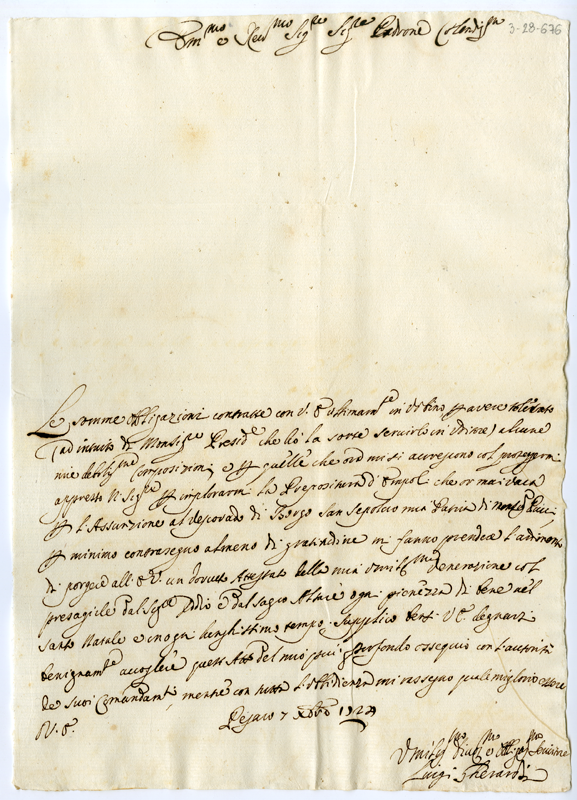 Em.mo e Rev.mo Sig.re Sig.re Padrone Colendis.mo
3-28-676
Le somme obbligazioni contratte con V. E. ultimam.te in Urbino p avere tolerato
(ad intuito di Monsig.re Presid.e che hò la sorte servirlo in Uditore) alcune
mie debolis.me composizioni, e p quelle che ora mi si accrescono col proteggermi
appresso N. Sig.re p implorarmi la Prepositura d'Empoli che or mai vaca
p l'Assunzione al Vescovado di Borgo San Sepolcro mia Patria di Mons.r Pucci,
p minimo contrasegno almeno di gratitudine mi fanno prendere l'ardimento
di porgere all' E. V. un dovuto Attestato della mia umilis.ma Venerazione col
presagirle dal Sig.re Iddio e dal sagro Altare ogni pienezza di bene nel
Santo Natale e in ogni lunghissimo tempo. Supplico l' E. V. degnarsi
benignam.te accogliere quest'Atto del mio più profondo ossequio con l'autorità
de suoi Comandam.ti, mentre con tutta l'obbidienza mi rassegno quale miglior essere
V. E.
Pesaro 7 Xbre 1724
Umilis.mo Divotis.mo e Obligatis.mo Servitore
Luigi Gherardi